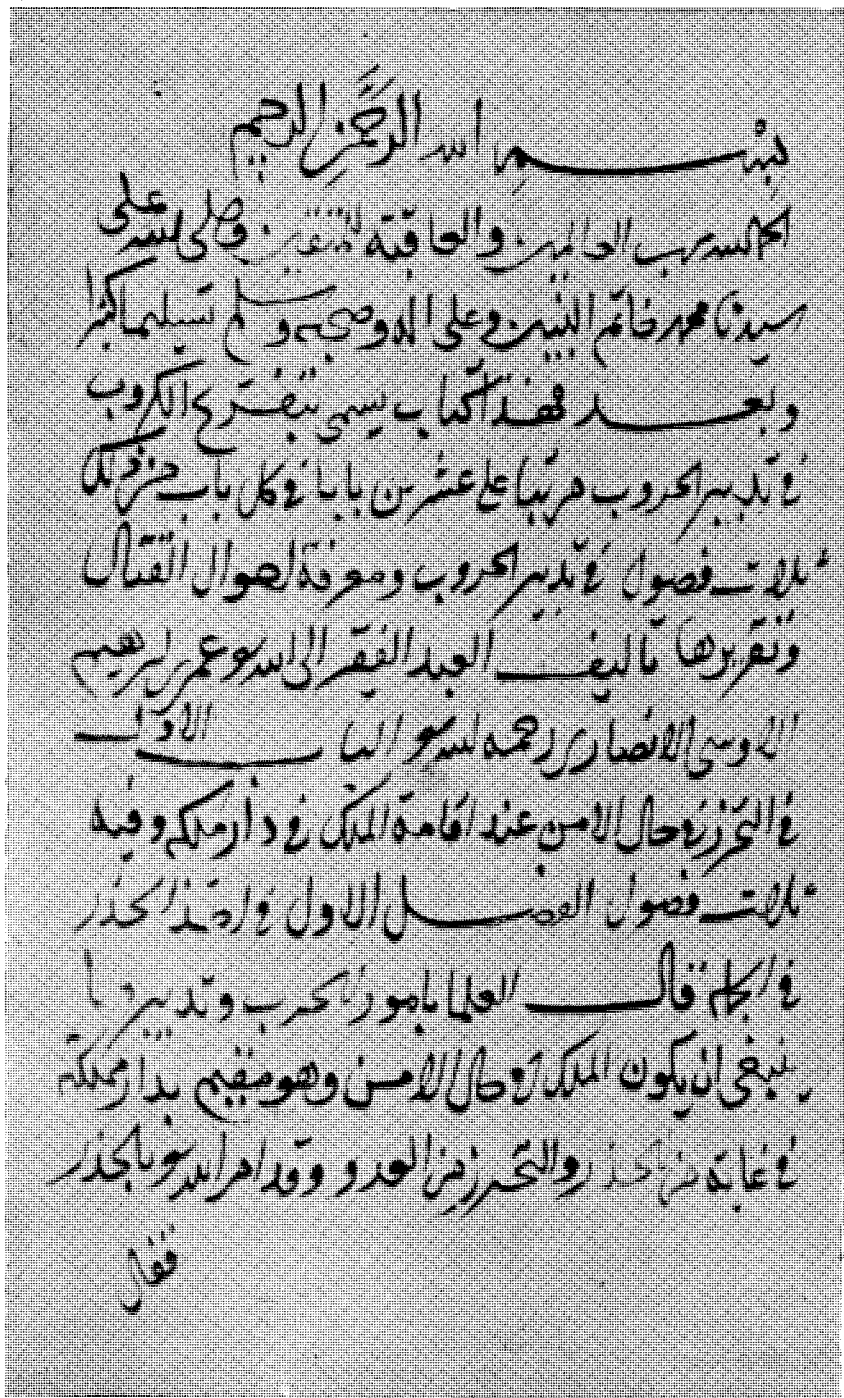 بسم الله الرحمن الرحيم
الحمد لله رب العالمين والعاقبة للمتقين وصلى الله على
سيدنا محمد خاتم النبيين وعلى اله وصحبه وسلم تسليما كثيرا
وبعد فهذا كتاب يسمى بتفريج الكروب
في تدبير الحروب مرتبا على عشرين بابا في كل باب من ذلك
ثلاث فصول في تدبير الحروب ومعرفة احوال القتال
وتقريرها تاليف العبد الفقير الى الله تع عمر بن ابرهيم
الاوسي الانصاري رحمه الله تع الباب الاول
في التحرز في حال الامن عند اقامة الملك في دار ملكه وفيه
ثلاث فصول الفصل الاول في الحذر
في قالت العلما بامور الحرب وتدبيرها
ينبغي ان يكون الملك في حال الامن وهو مقيم بدار مملكته
في غاية من الحذر والتحرز من العدو وقد امر الله تع بالحذر
فقال